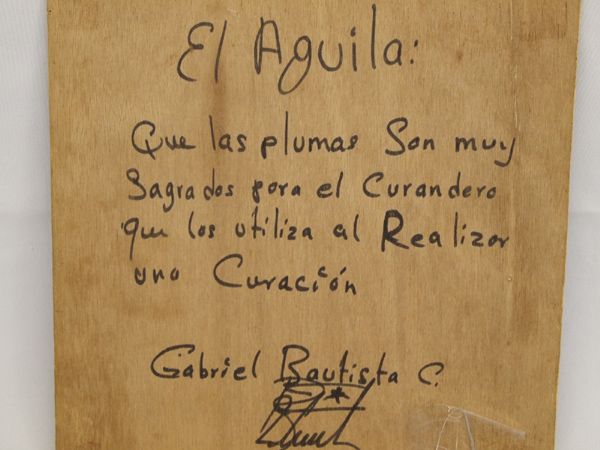 El Aguila:
Que las plumas Son muy
Sagrados para el Curandero
que los utiliza al Realizar
una Curación
Gabriel Bautista C.